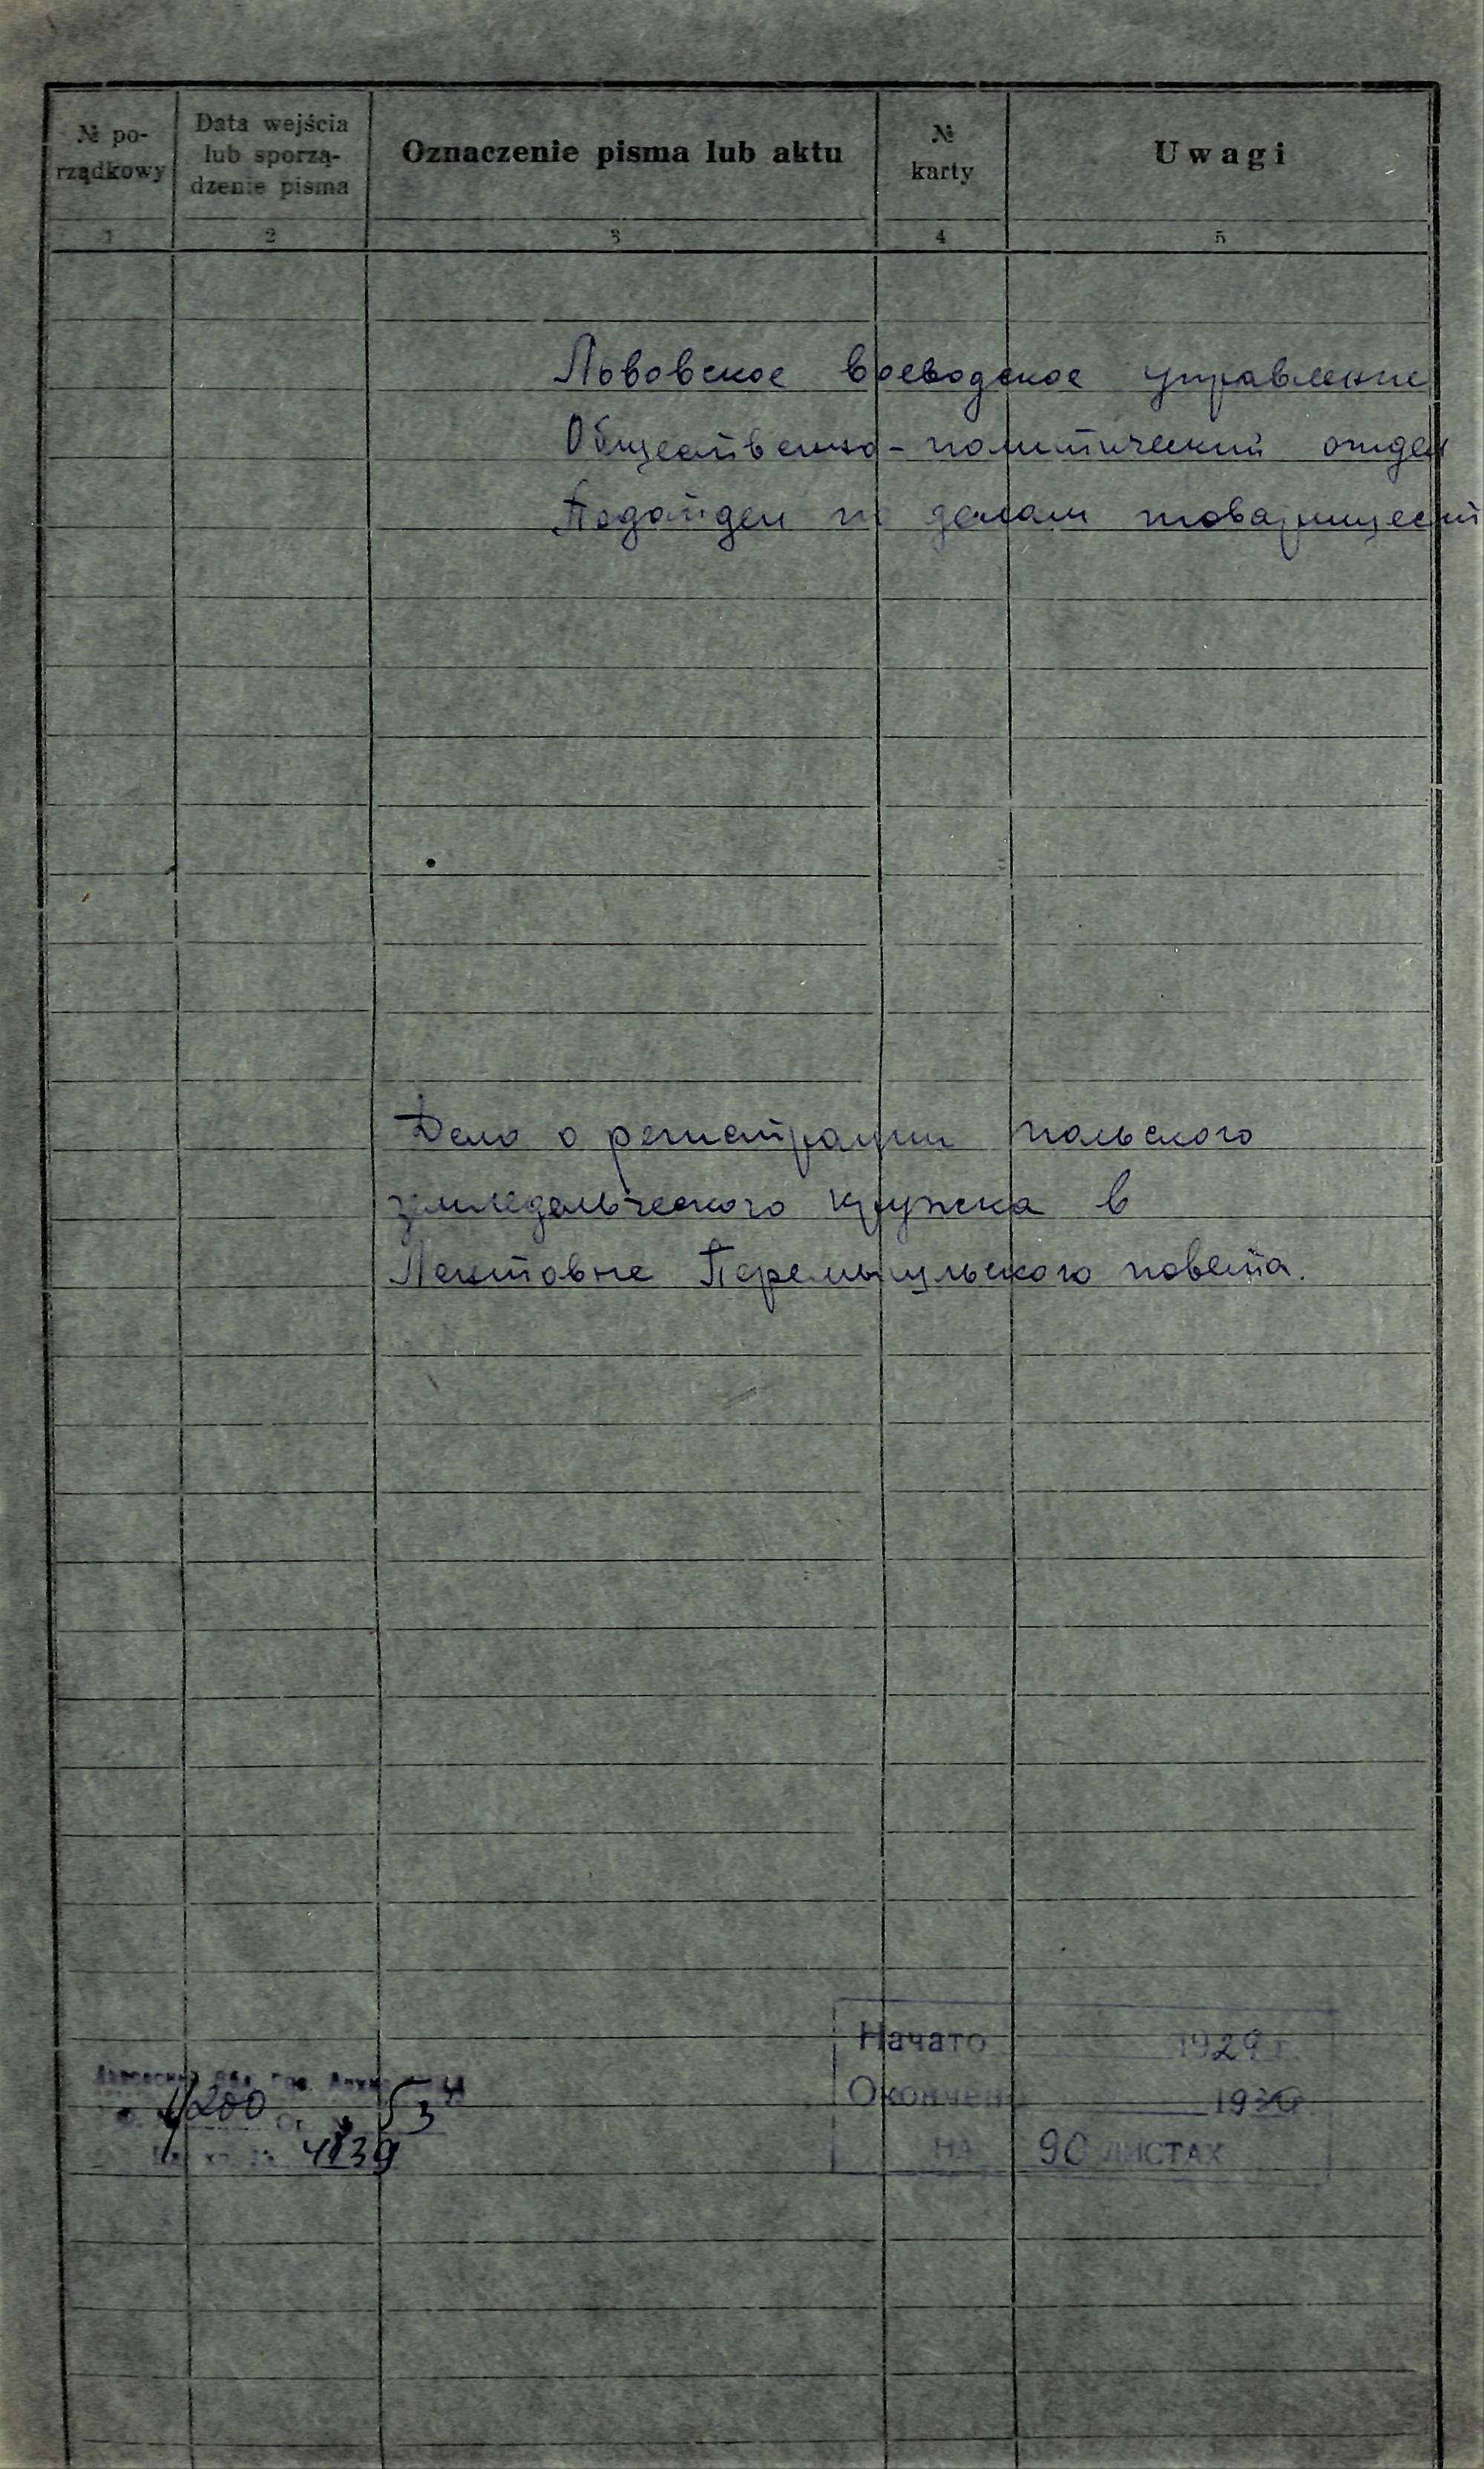 № po-
rządkowy
Data wejścia
lub sporzą-
dzenie pisma
Oznaczenie pisma lub aktu
№
karty
Uwagi
1 2 3 4 5
Львовское воеводское управление
Общественно-политический отдел
Подотдел по делам товариществ
Дело о регистрации польского
земледельческого кружка в
Лентовне Перемышльского повета.
Начато 1929 г.
Окончено 1930
НА 90 ЛИСТАХ
1/200 53
4839